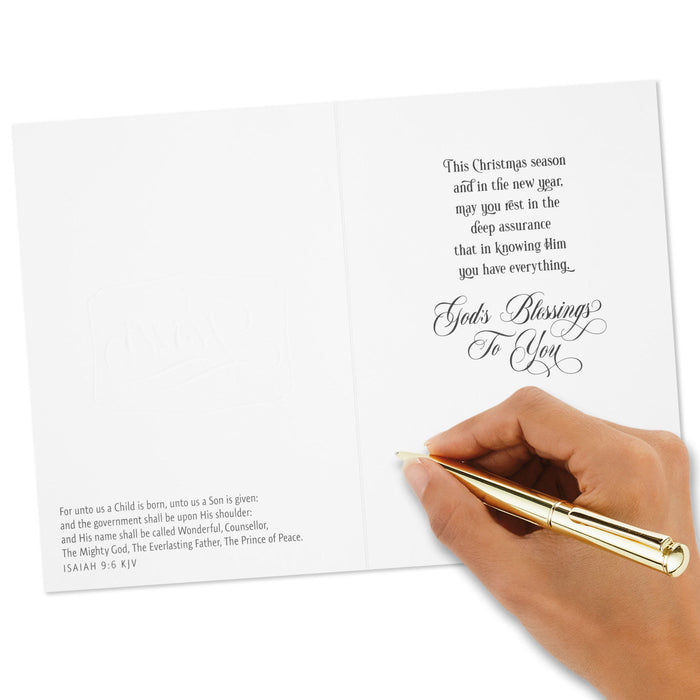 For unto us a Child is born, unto us a Son is given:
and the government shall be upon His shoulder:
and His name shall be called Wonderful, Counsellor,
The Mighty God, The Everlasting Father, The Prince of Peace.
ISAIAH 9:6 KJV
This Christmas season
and in the new year,
may you rest in the
deep assurance
that in knowing Him
you have everything.
God's Blessings
To You